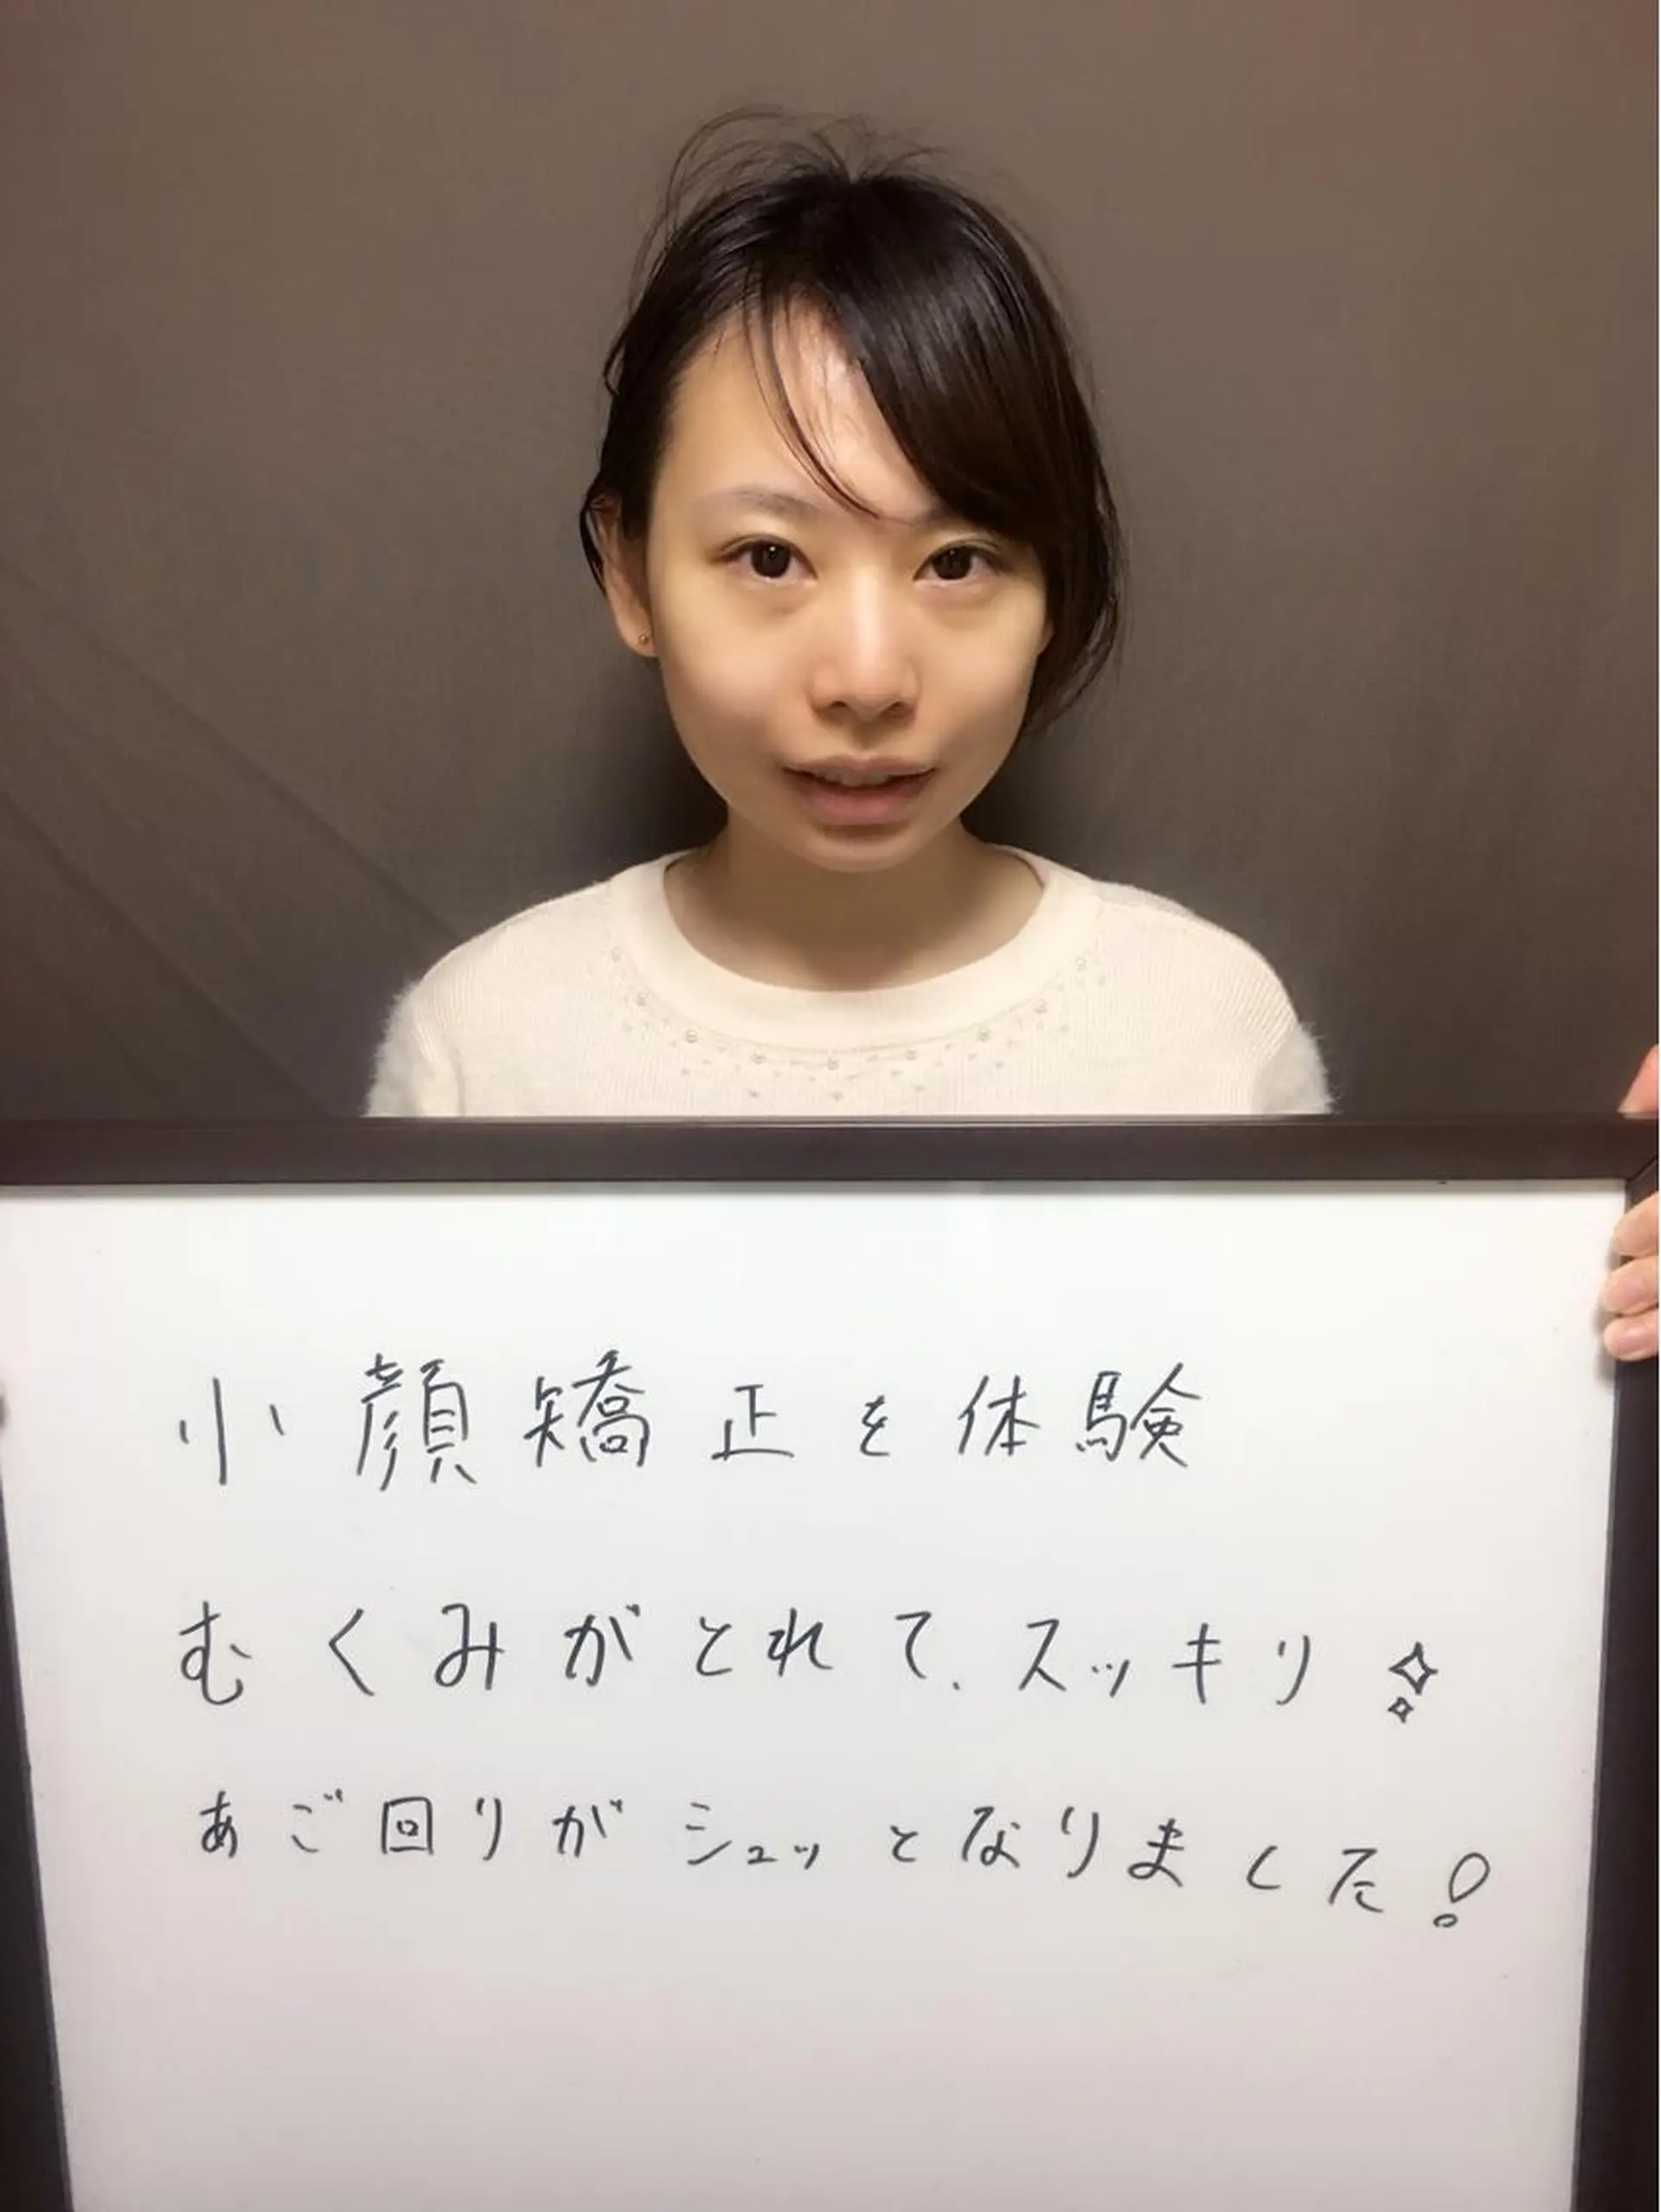 小顔矯正を体験
むくみがとれて、スッキリ✧
あご回りがシュッとなりました!